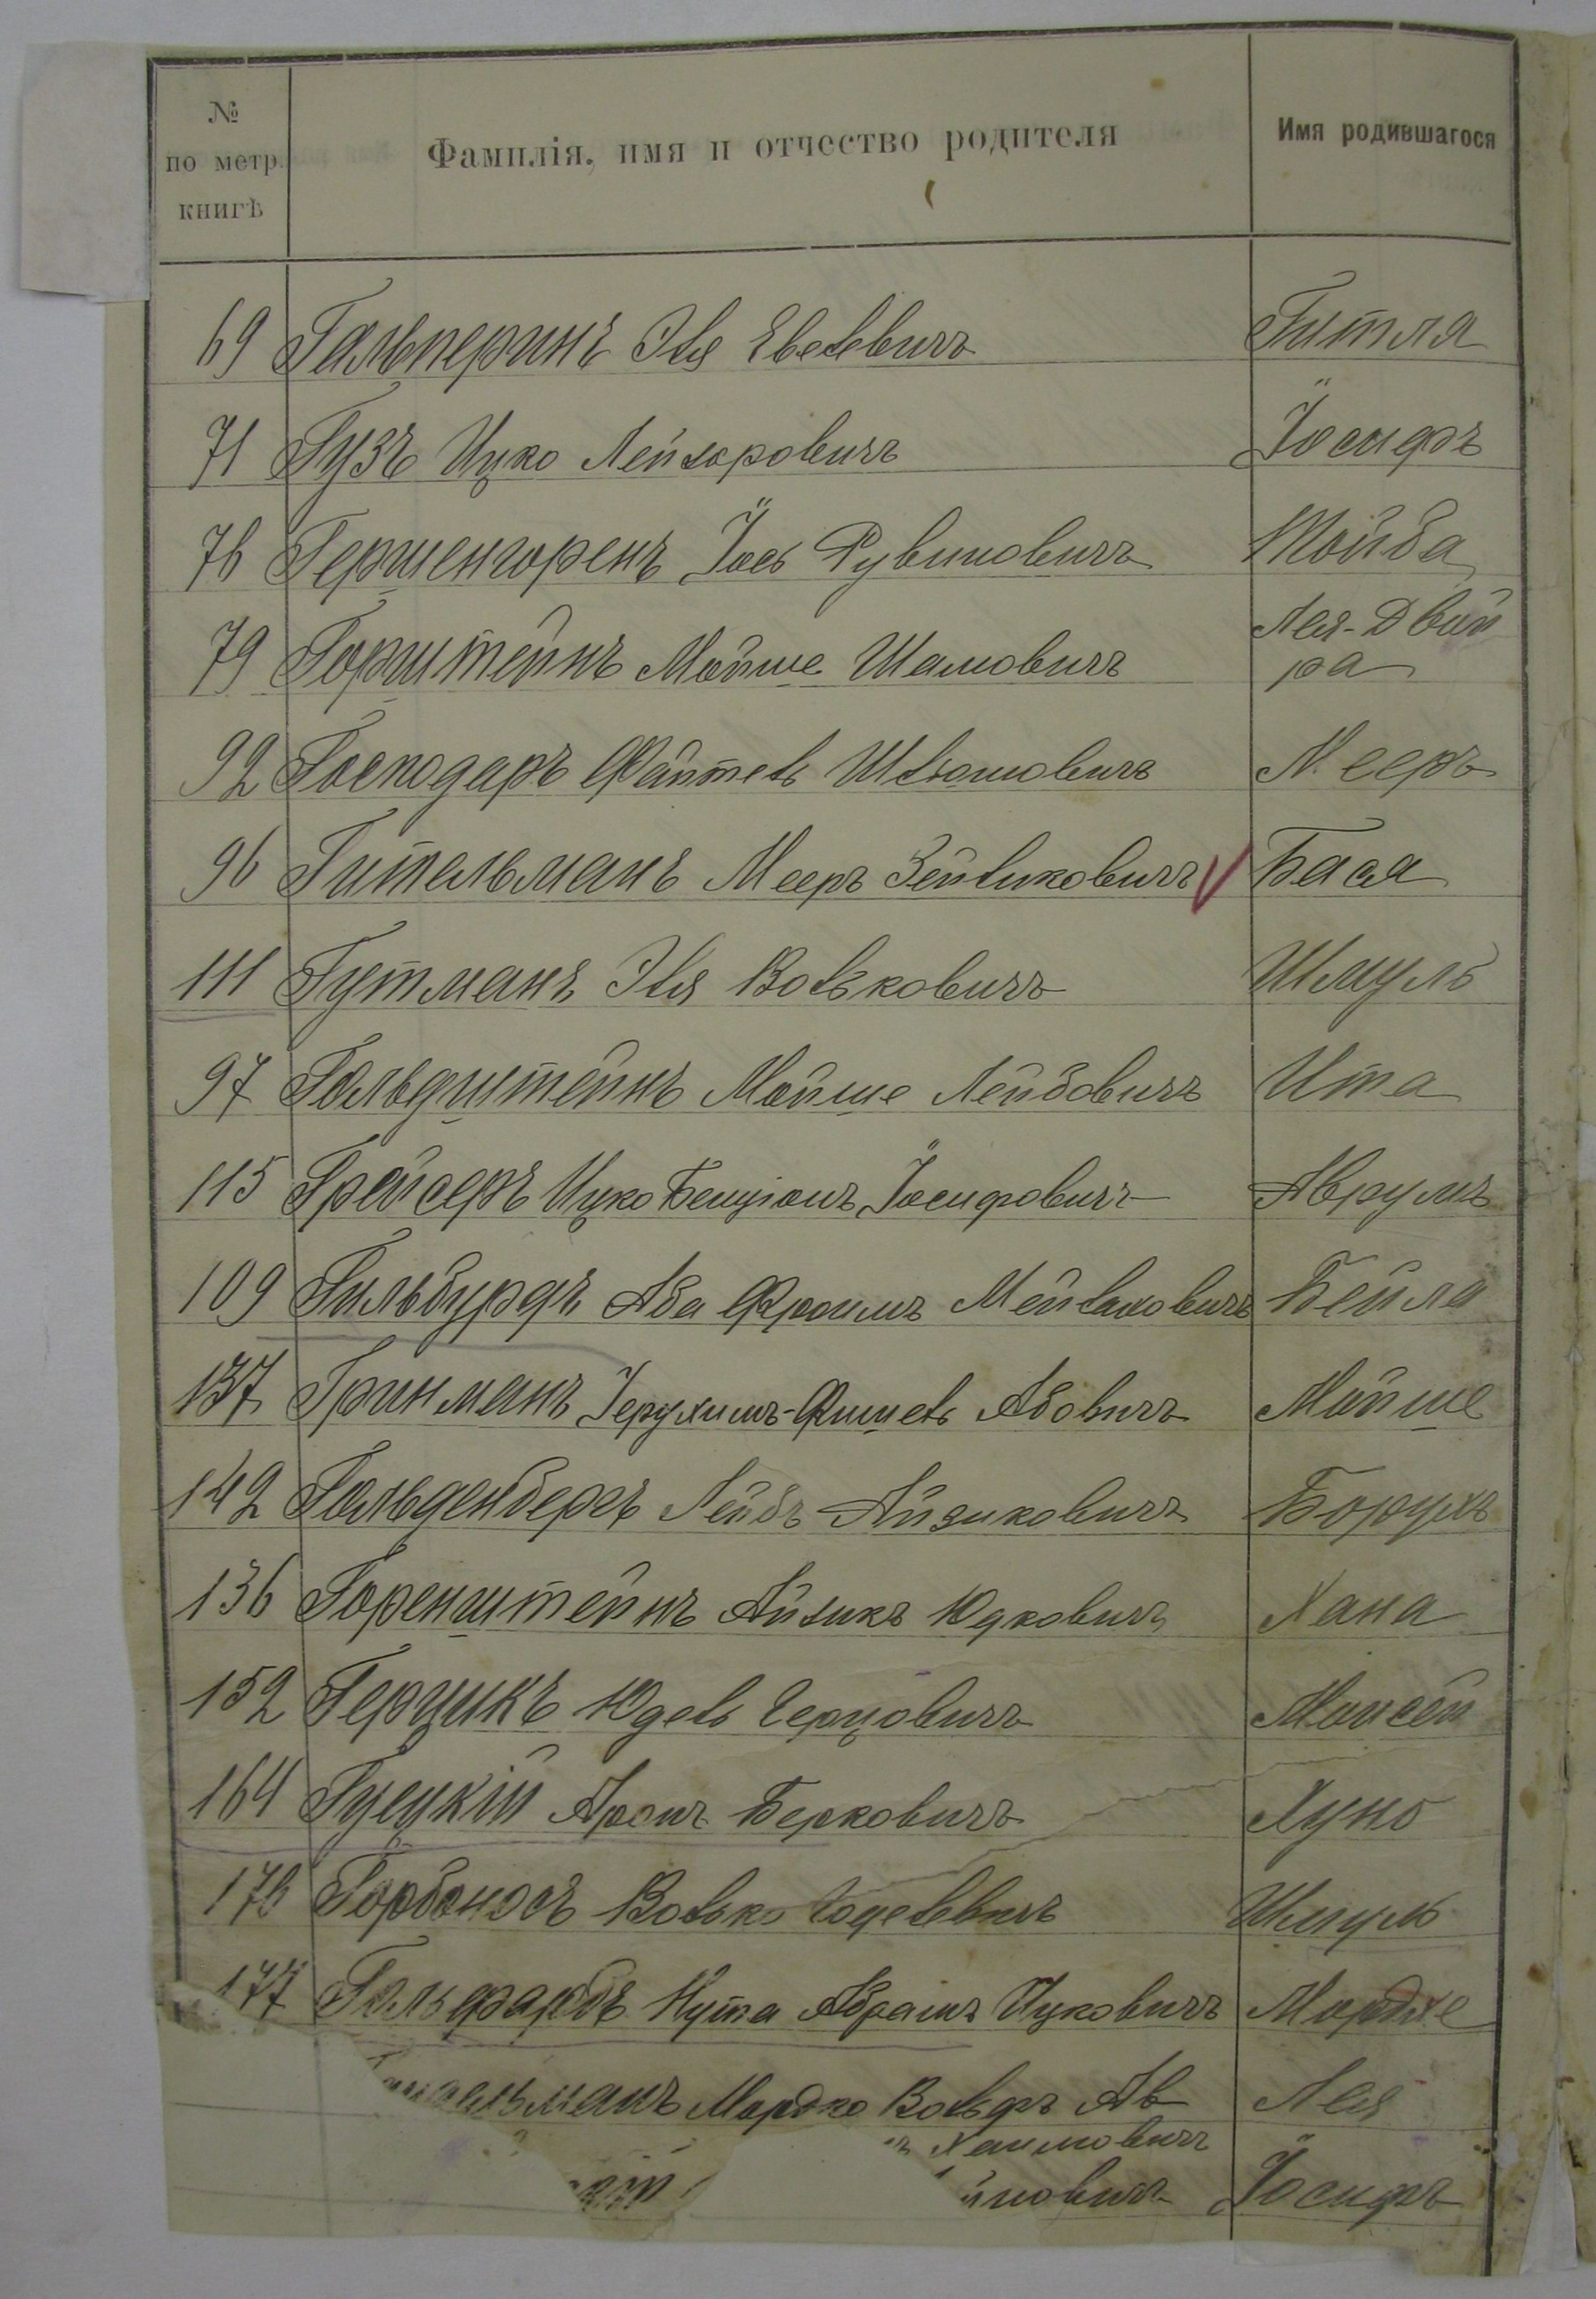 №
по метр.
книгѣ
Фамилія, имя и отчество родителя
Имя родившагося
69 Гальперинъ Эля Евелевичъ Гитля
71 Гузъ Ицко Лейзоровичъ Іосифъ
76 Гершенгоренъ Іось Рувиновичъ Тойба
79 Горштейнъ Мойше Шамовичъ Лея-Двой
ра
92 Господаръ Файтель Шлемовичъ Мееръ
96 Гительманъ Мееръ Зейликовичъ Бася
111 Гутманъ Эля Волъковичъ Шмуль
97 Гольдштейнъ Мойше Лейбовичъ Ита
115 Грейсеръ Ицко Бенціонъ Іосифовичъ Аврумъ
109 Гильбурдъ Аба Фроимъ Мейлаховичъ Бейла
137 Гринманъ Іерухимъ-Фишель Абовичъ Мойше
142 Гольденбергъ Лейбъ Айзиковичъ Борухъ
136 Горенштейнъ Айзикъ Юдковичъ Хана
152 Герцикъ Юдель Герцовичъ Моисей
164 Гуецкій Аронъ Берковичъ Хуно
Горбоносъ Волько Годелевичъ Шмуль
177 Гольфарбъ Нута Абрамъ Ицковичъ Мордхе
манъ Мордко Вольфъ Ав Лея
Хаимовичъ
новичъ Іосифъ